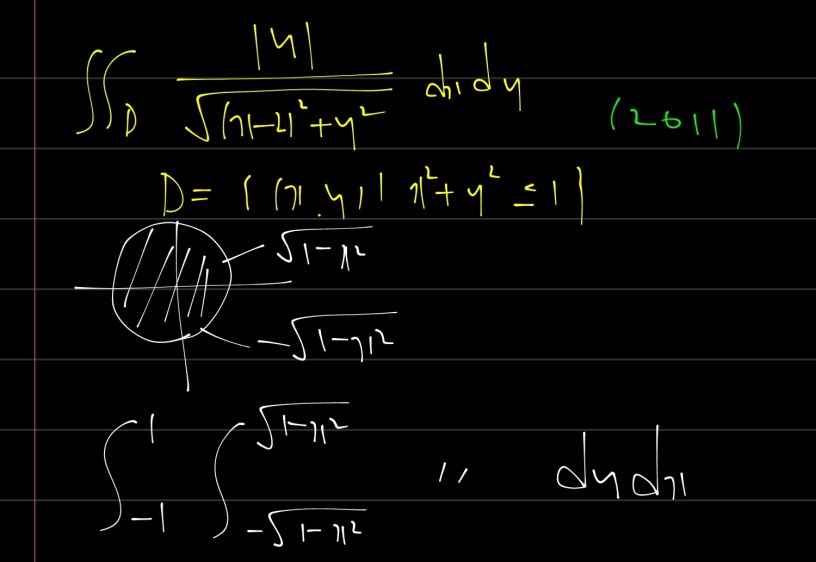 ∬_D |y| / √((x-2)²+y²) dx dy
(2011)
D = { (x, y) | x²+y² ≤ 1 }
√(1-x²)
-√(1-x²)
∫_{-1}^{1} ∫_{-√(1-x²)}^{√(1-x²)} 〃 dy dx